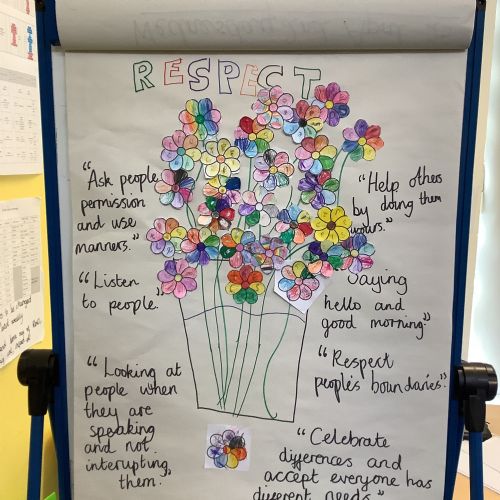 RESPECT
"Ask people
permission
and use
manners."
"Help others
by doing them
"Listen
to people."
Saying
hello and
good morning."
"Looking at
people when
they are
speaking
and not
interupting
them."
"Respect
people's boundaries."
"Celebrate
differences and
accept everyone has
different needs"